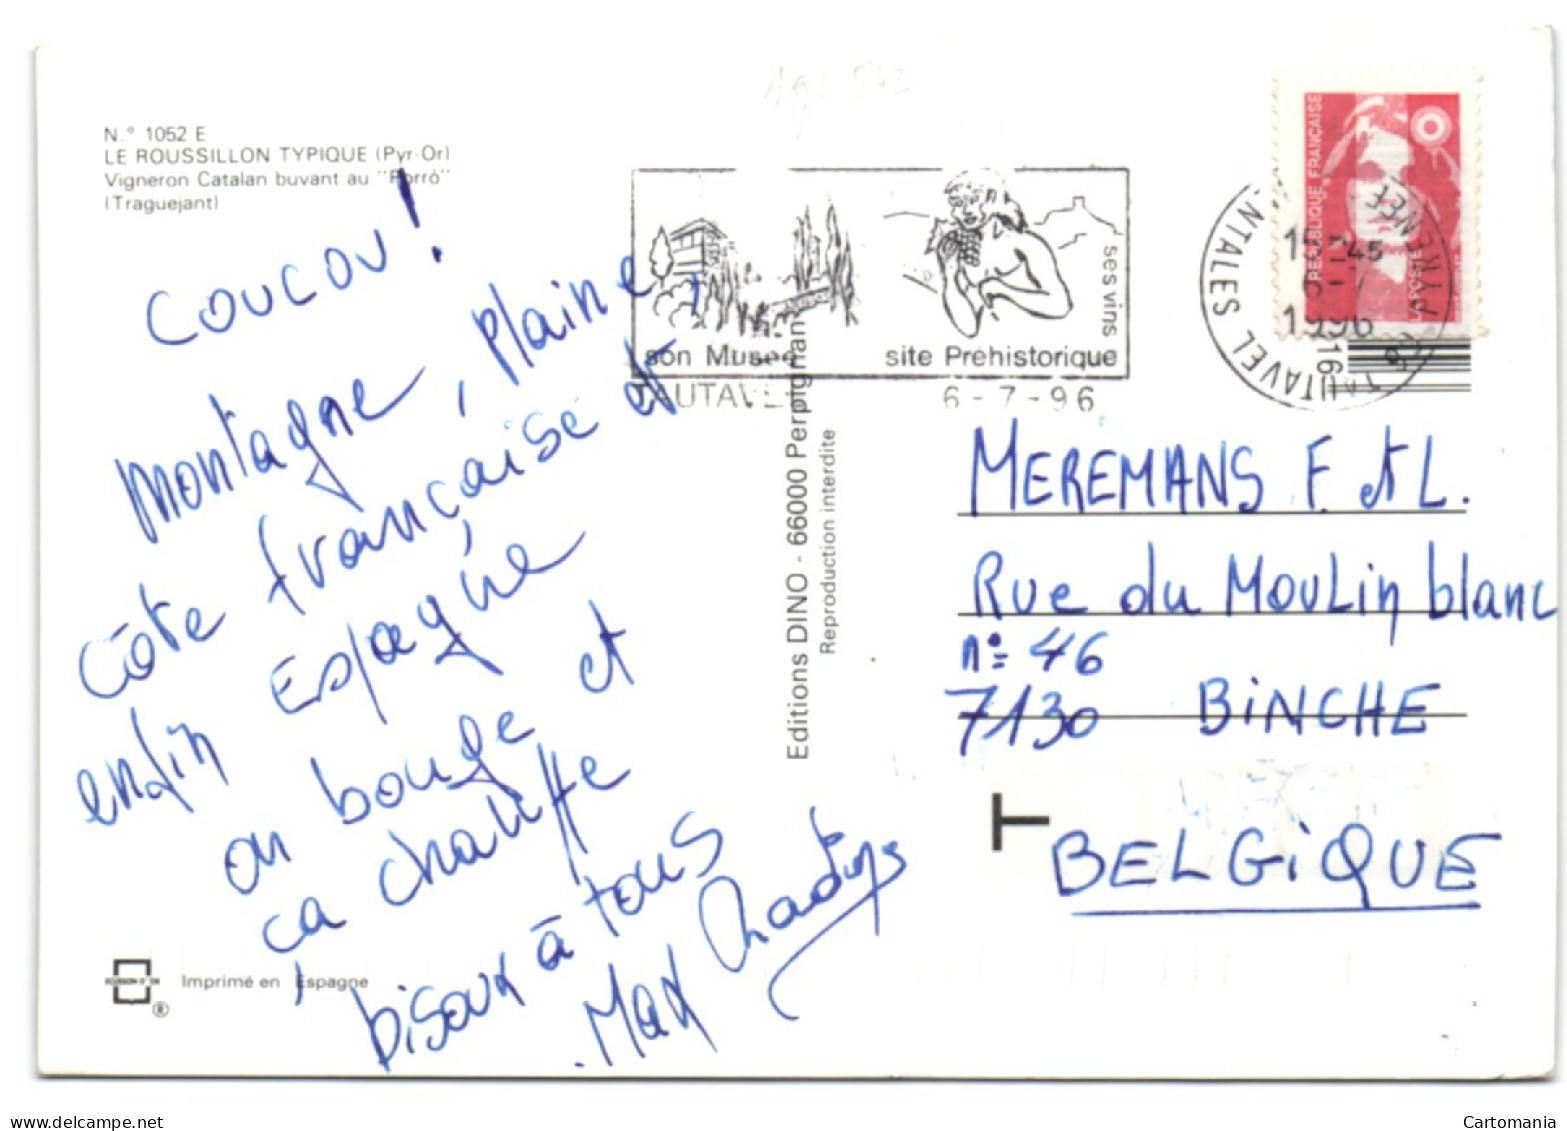 N.° 1052 E
LE ROUSSILLON TYPIQUE (Pyr-Or)
Vigneron Catalan buvant au "Porró"
(Traguejant)
coucou !
montagne, plaine,
côte française et
enfin Espagne
on bouge et
ça chauffe
bisoux à tous
Max
Imprimé en Espagne
®
Editions DINO - 66000 Perpignan
Reproduction interdite
son Musée
site Préhistorique
ses vins
TAUTAVEL
6-7-96
RÉPUBLIQUE FRANÇAISE
LA POSTE
1996
TAUTAVEL
MEREMANS F. et L.
Rue du Moulin blanc
n° 46
7130 BINCHE
T
BELGIQUE
delcampe.net
Cartomania